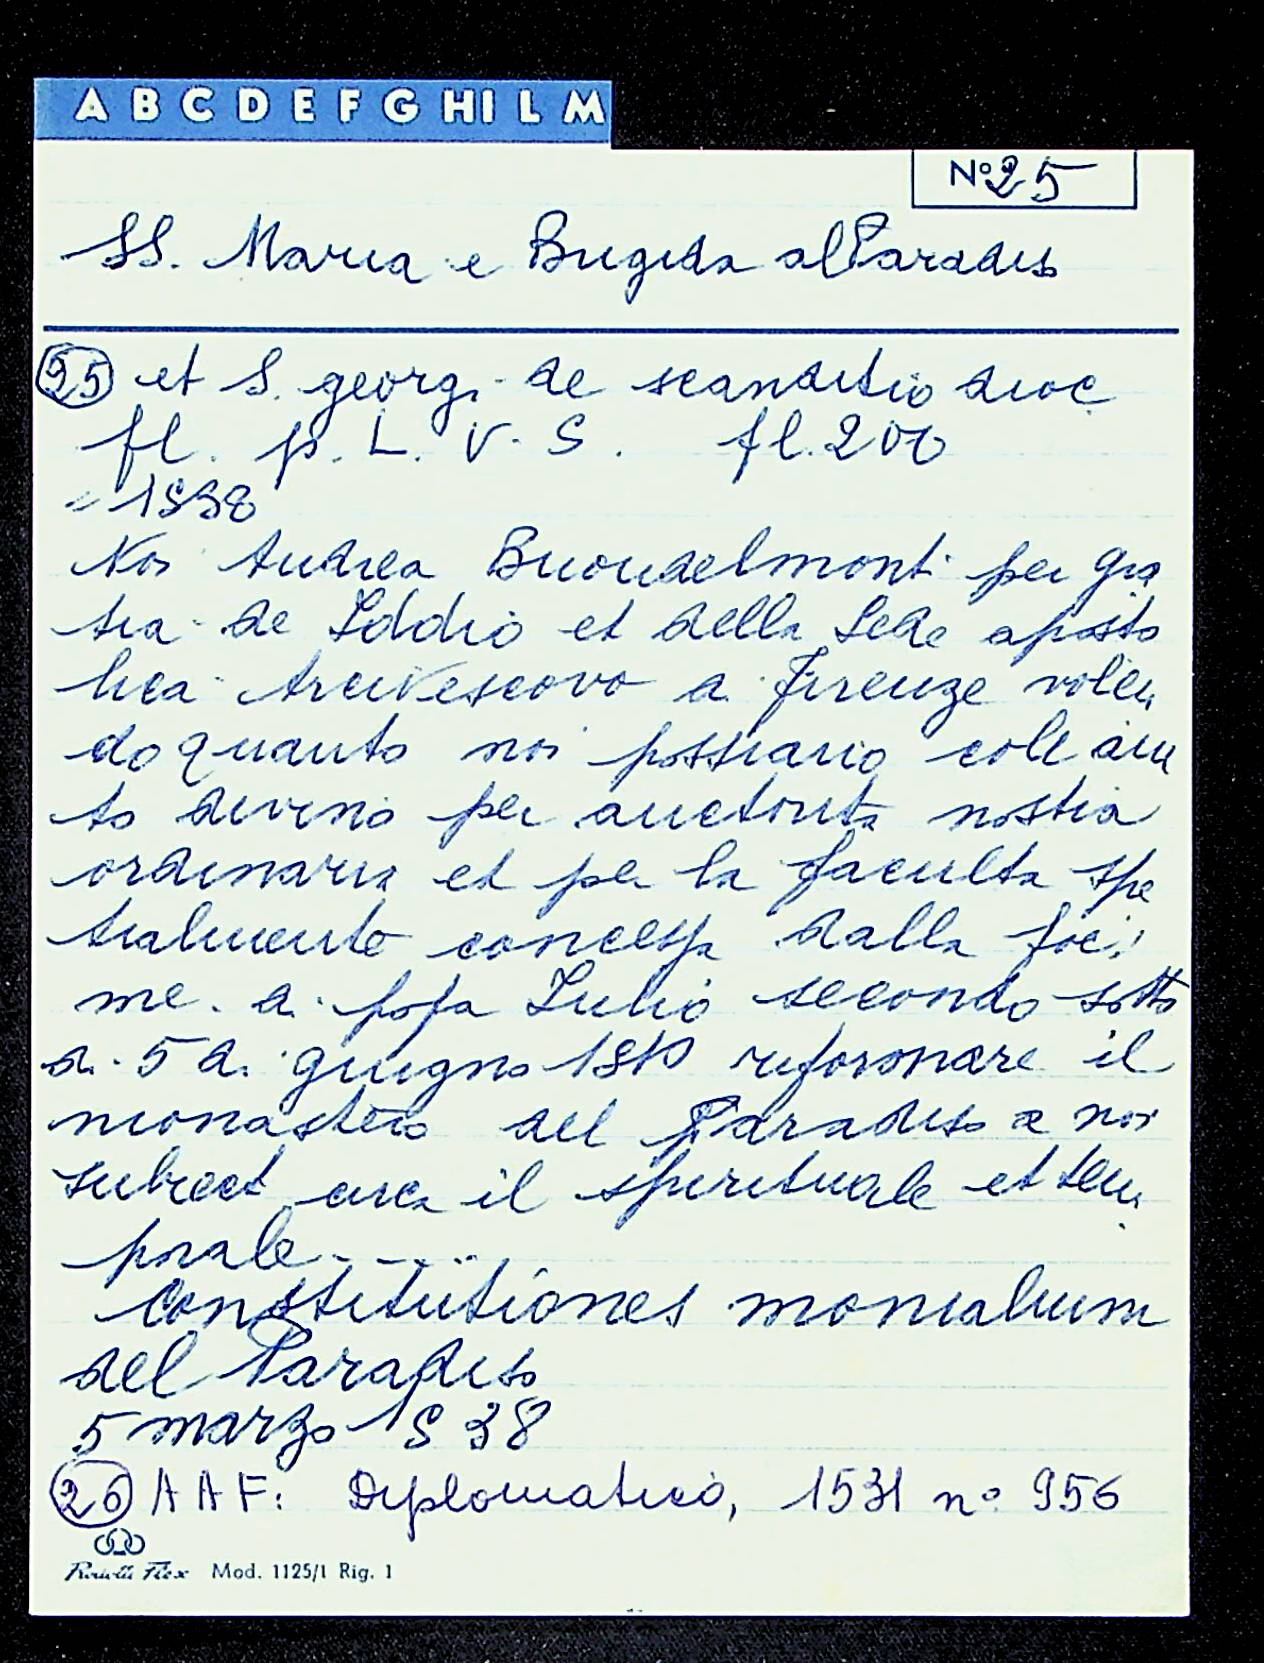 A B C D E F G HI L M
N° 25
SS. Maria e Brigida al Paradiso
25 et S. georgi de scanditio dioc
fl. p. L. V. S. fl. 200
1538
Noi Andrea Buondelmonti per gra
tia de Iddio et della Sede aposto
lica Arcivescovo di Firenze volen
do quanto noi possiamo coll aiu
to divino per auctorità nostra
ordinaria et per la facultà spe
tialmente concessa dalla
me. di papa Iulio secondo sotto
di 5 di giugno 1510 riformare il
monasterio del Paradiso a noi
subiect circa il spirituale et tem
porale - - - . . .
Constitutiones monialium
del Paradiso
5 marzo 1538
26 A A F: Diplomatico, 1531 n° 956
Flex Mod. 1125/1 Rig. 1